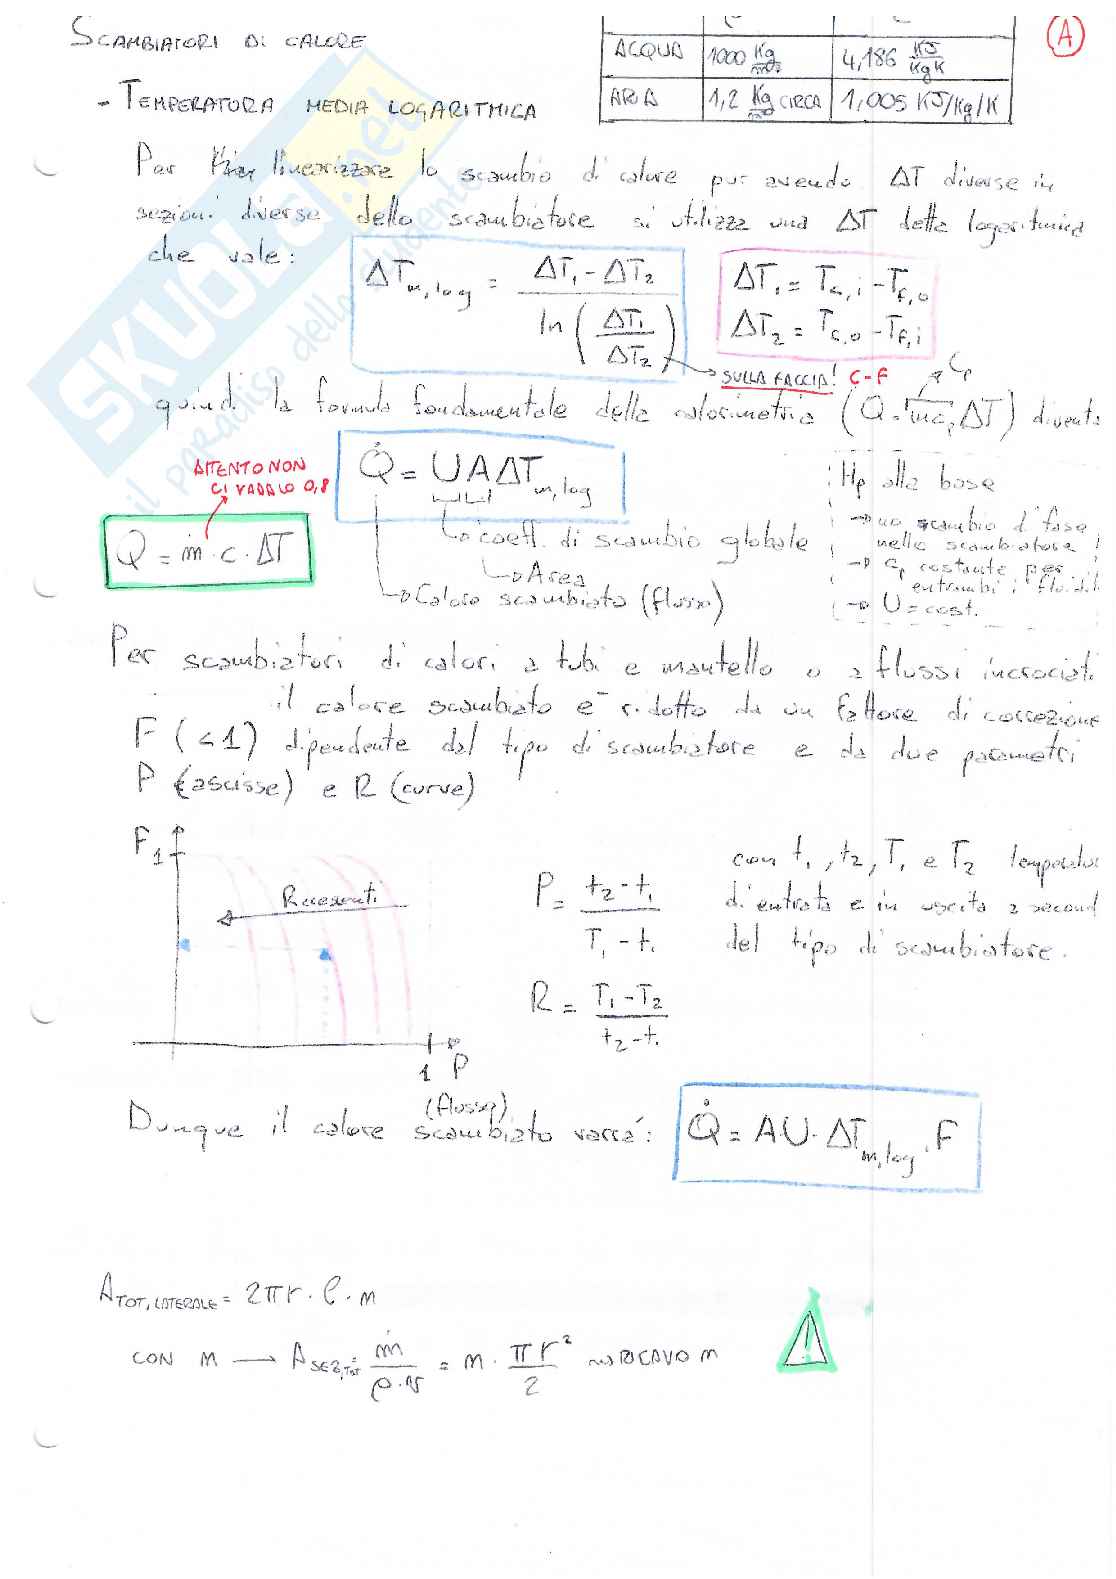 SCAMBIATORI DI CALORE
ρ c
ACQUA 1000 Kg/m³ 4,186 KJ/KgK
ARIA 1,2 Kg/m³ CIRCA 1,005 KJ/Kg/K
A
- TEMPERATURA MEDIA LOGARITMICA
Per linearizzare lo scambio di calore pur avendo ΔT diverse in
sezioni diverse dello scambiatore si utilizza una ΔT detta logaritmica
che vale:
ΔTm,log = (ΔT1 - ΔT2) / ln (ΔT1/ΔT2)
ΔT1 = Tc,i - Tf,o
ΔT2 = Tc,o - Tf,i
SULLA FACCIA! C-F
quindi la formula fondamentale della calorimetria (Q = mcp ΔT) diventa
Cp
Q̇ = UAΔTm,log
ATTENTO NON
CI VADA LO 0,8
Q = ṁ · c · ΔT
coeff. di scambio globale
Area
Calore scambiato (flusso)
Hp alla base
→ no scambio d'fase
nello scambiatore!
→ cp costante per
entrambi i fluidi!
→ U = cost.
Per scambiatori di calori a tubi e mantello o a flussi incrociati
il calore scambiato è ridotto da un fattore di correzione
F (<1) dipendente dal tipo di scambiatore e da due parametri
P (ascisse) e R (curve)
F
1
R crescenti
1 P
P = (t2 - t1) / (T1 - t1)
R = (T1 - T2) / (t2 - t1)
con t1, t2, T1 e T2 temperatur
di entrata e in uscita a second
del tipo di scambiatore.
(flusso)
Dunque il calore scambiato varrà: Q̇ = A·U·ΔTm,log·F
ATOT,LATERALE = 2πr · l · m
CON m → ASEZ,TOT = ṁ/(ρ·v) = m · πr²/2 RICAVO m
SKUOLA.net
il paradiso dello studente